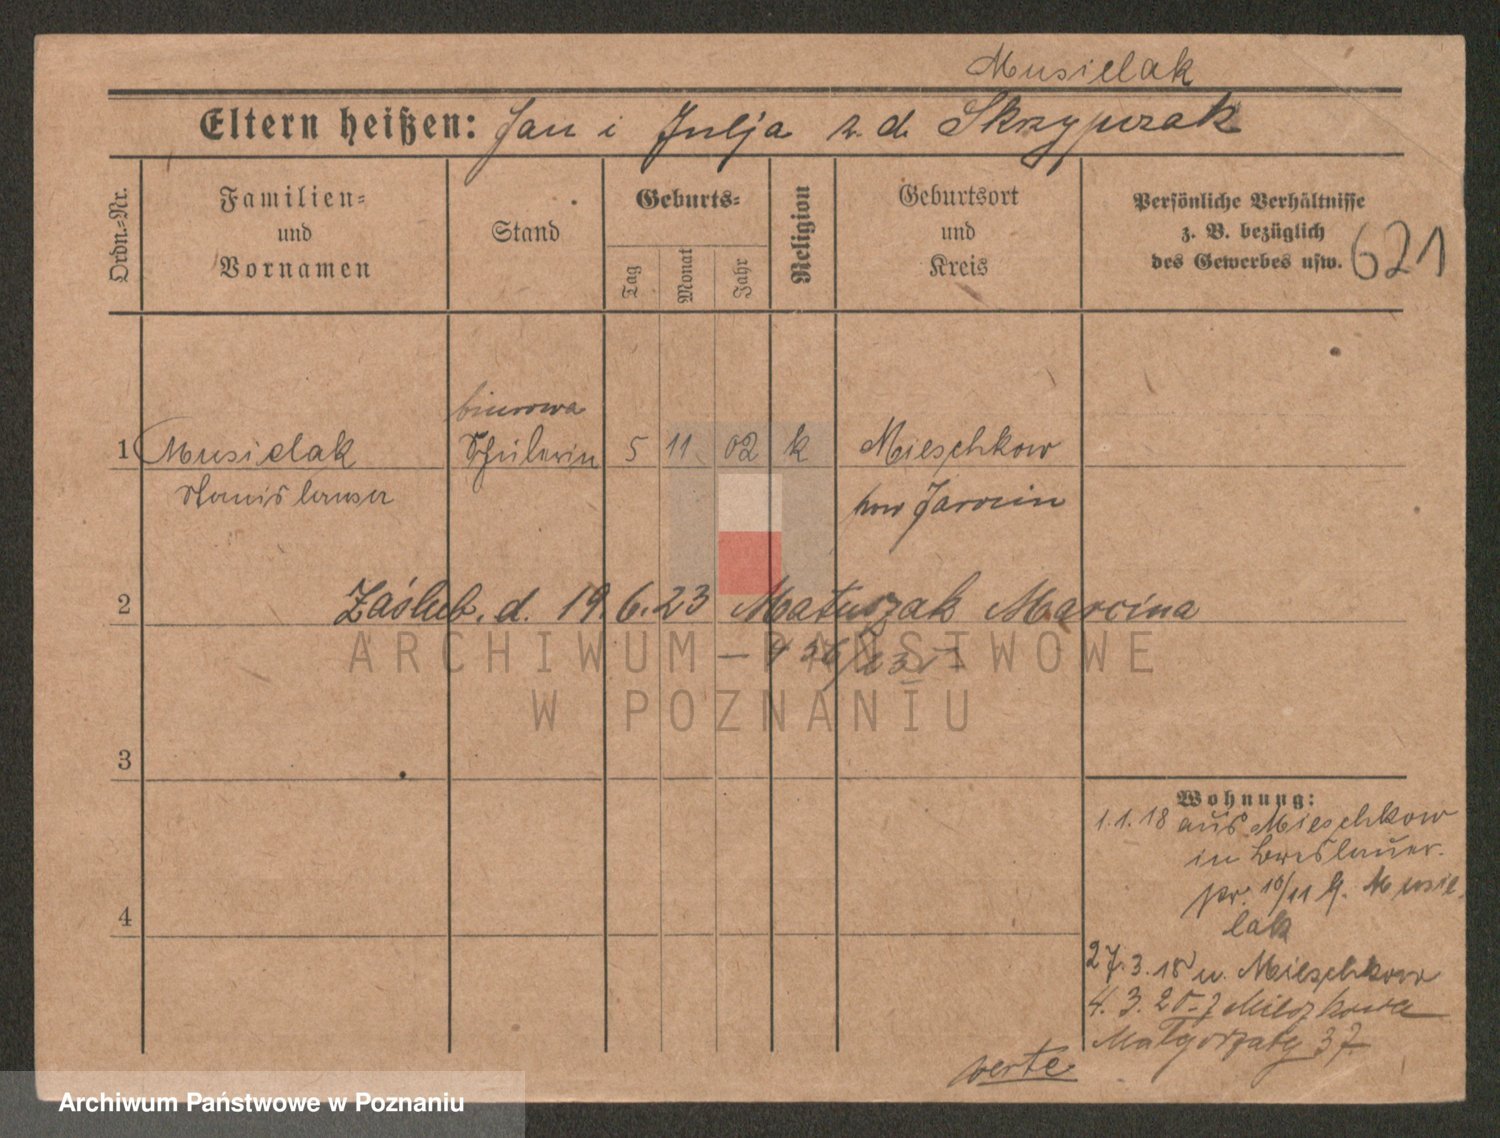 Musielak
Eltern heißen: Jan i Julja z. d. Skrzypczak
Ordn.-Nr.
Familien-
und
Vornamen
Stand
Geburts-
Tag
Monat
Jahr
Religion
Geburtsort
und
Kreis
Persönliche Verhältnisse
z. B. bezüglich
des Gewerbes usw.
621
biurowa
1 Musielak Schülerin 5 11 02 k Mieschkow
Stanislawa Jarocin
2 Zaślub. d. 19.6.23 Matuszak Marcina
ARCHIWUM PAŃSTWOWE
W POZNANIU
3
Wohnung:
1.1.18 aus Mieschkow
in Breslauer-
10/11 Musie-
lak
4
27.3.18 n. Mieschkow
4.3.20 z Mieszkowa
Małgorzaty 37
verte
Archiwum Państwowe w Poznaniu